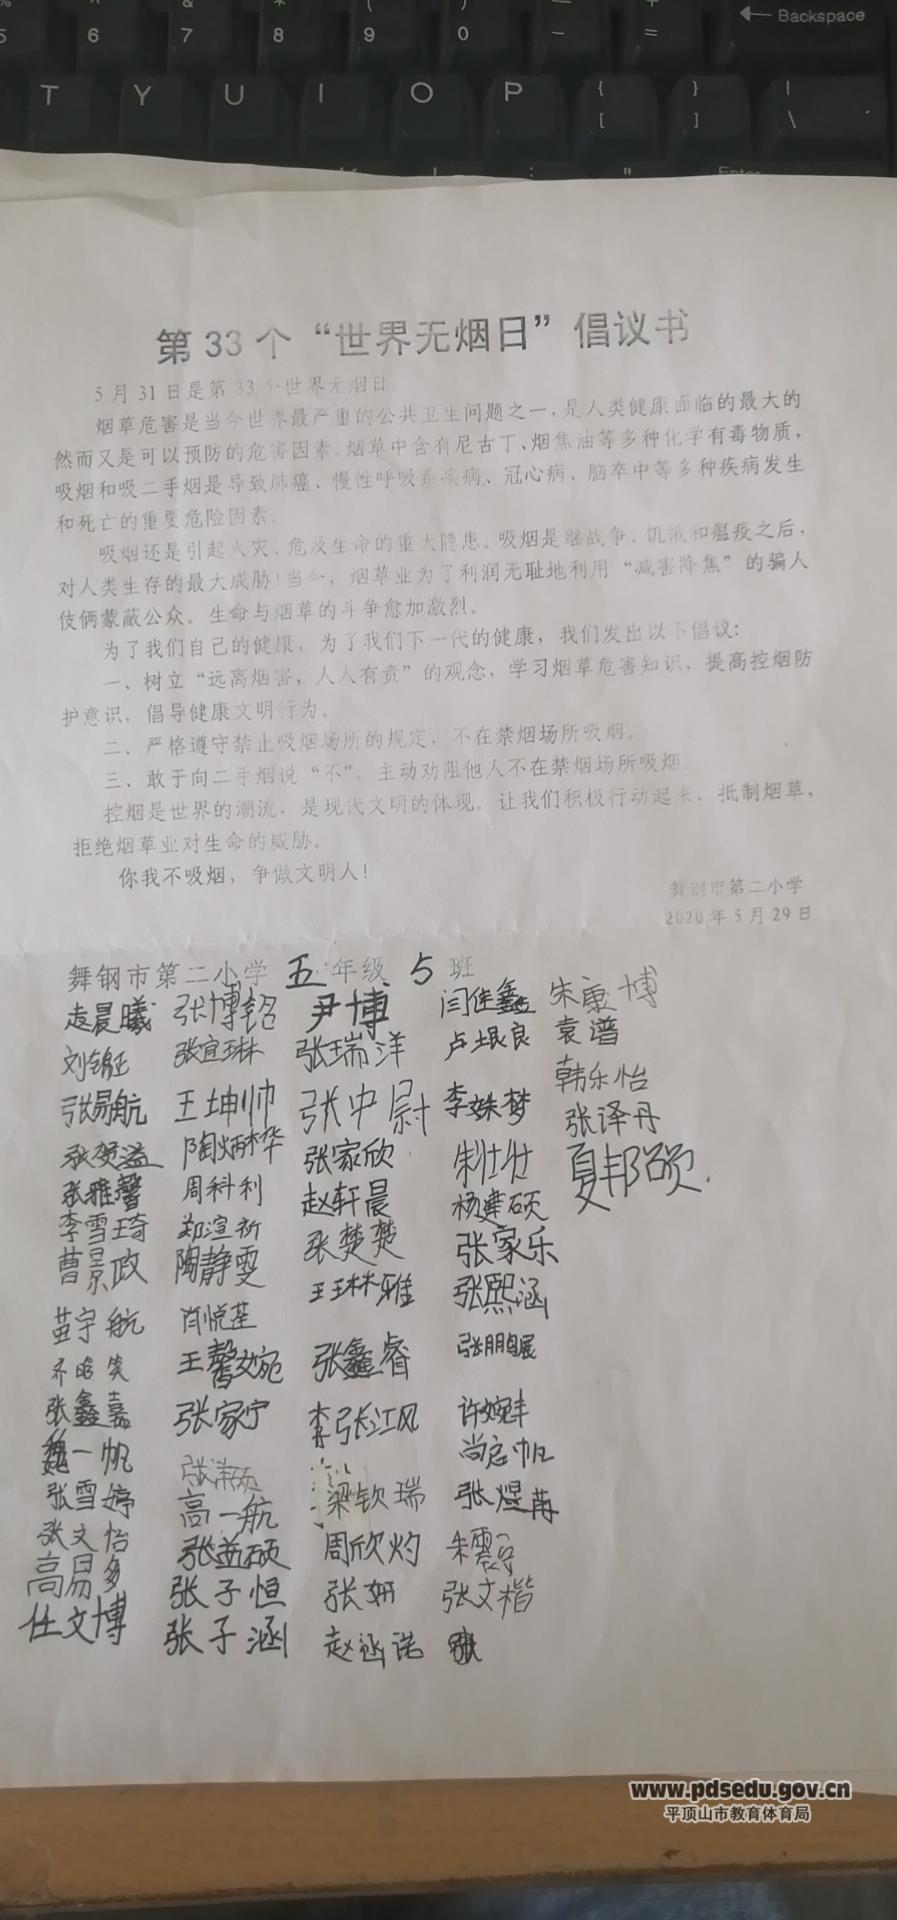 % ^ & * ( ) — +
5 6 7 8 9 0 - = Backspace
T Y U I O P { [ } ] | \
K L : " Enter
第33个“世界无烟日”倡议书
5月31日是第33个世界无烟日。
烟草危害是当今世界最严重的公共卫生问题之一,是人类健康面临的最大的
然而又是可以预防的危害因素。烟草中含有尼古丁、烟焦油等多种化学有毒物质,
吸烟和吸二手烟是导致肺癌、慢性呼吸系疾病、冠心病、脑卒中等多种疾病发生
和死亡的重要危险因素。
吸烟还是引起火灾、危及生命的重大隐患。吸烟是继战争、饥饿和瘟疫之后,
对人类生存的最大威胁!当今,烟草业为了利润无耻地利用“减害降焦”的骗人
伎俩蒙蔽公众。生命与烟草的斗争愈加激烈。
为了我们自己的健康,为了我们下一代的健康,我们发出以下倡议:
一、树立“远离烟害,人人有责”的观念,学习烟草危害知识,提高控烟防
护意识,倡导健康文明行为。
二、严格遵守禁止吸烟场所的规定,不在禁烟场所吸烟。
三、敢于向二手烟说“不”,主动劝阻他人不在禁烟场所吸烟。
控烟是世界的潮流,是现代文明的体现。让我们积极行动起来,抵制烟草,
拒绝烟草业对生命的威胁。
你我不吸烟,争做文明人!
舞钢市第二小学
2020年5月29日
舞钢市第二小学 五 年级 5 班
孟晨曦 张博铭 尹博 闫佳鑫 朱康博
刘锦征 张宜琳 张瑞洋 卢垠良 袁谱
张易航 王坤帅 张中尉 李姝梦 韩乐怡
张贺溢 陶炳桦 张家欣 朱壮壮 张译丹
张雅馨 周科利 赵轩晨 杨建硕 夏邦硕
李雪琦 郑渲祈 张楚楚 张家乐
曹景政 陶静雯 王琳雅 张熙涵
苗宇航 肖悦荃 张鹏展
齐昭笑 王馨婉 张鑫睿
张鑫嘉 张家宁 李张江风 许婉丰
魏一帆 尚启帆
张雪婷 高一航 梁钦瑞 张煜苒
张文怡 张益硕 周欣灼 朱震
高易多 张子恒 张妍 张文楷
任文博 张子涵 赵涵诺
www.pdsedu.gov.cn
平顶山市教育体育局